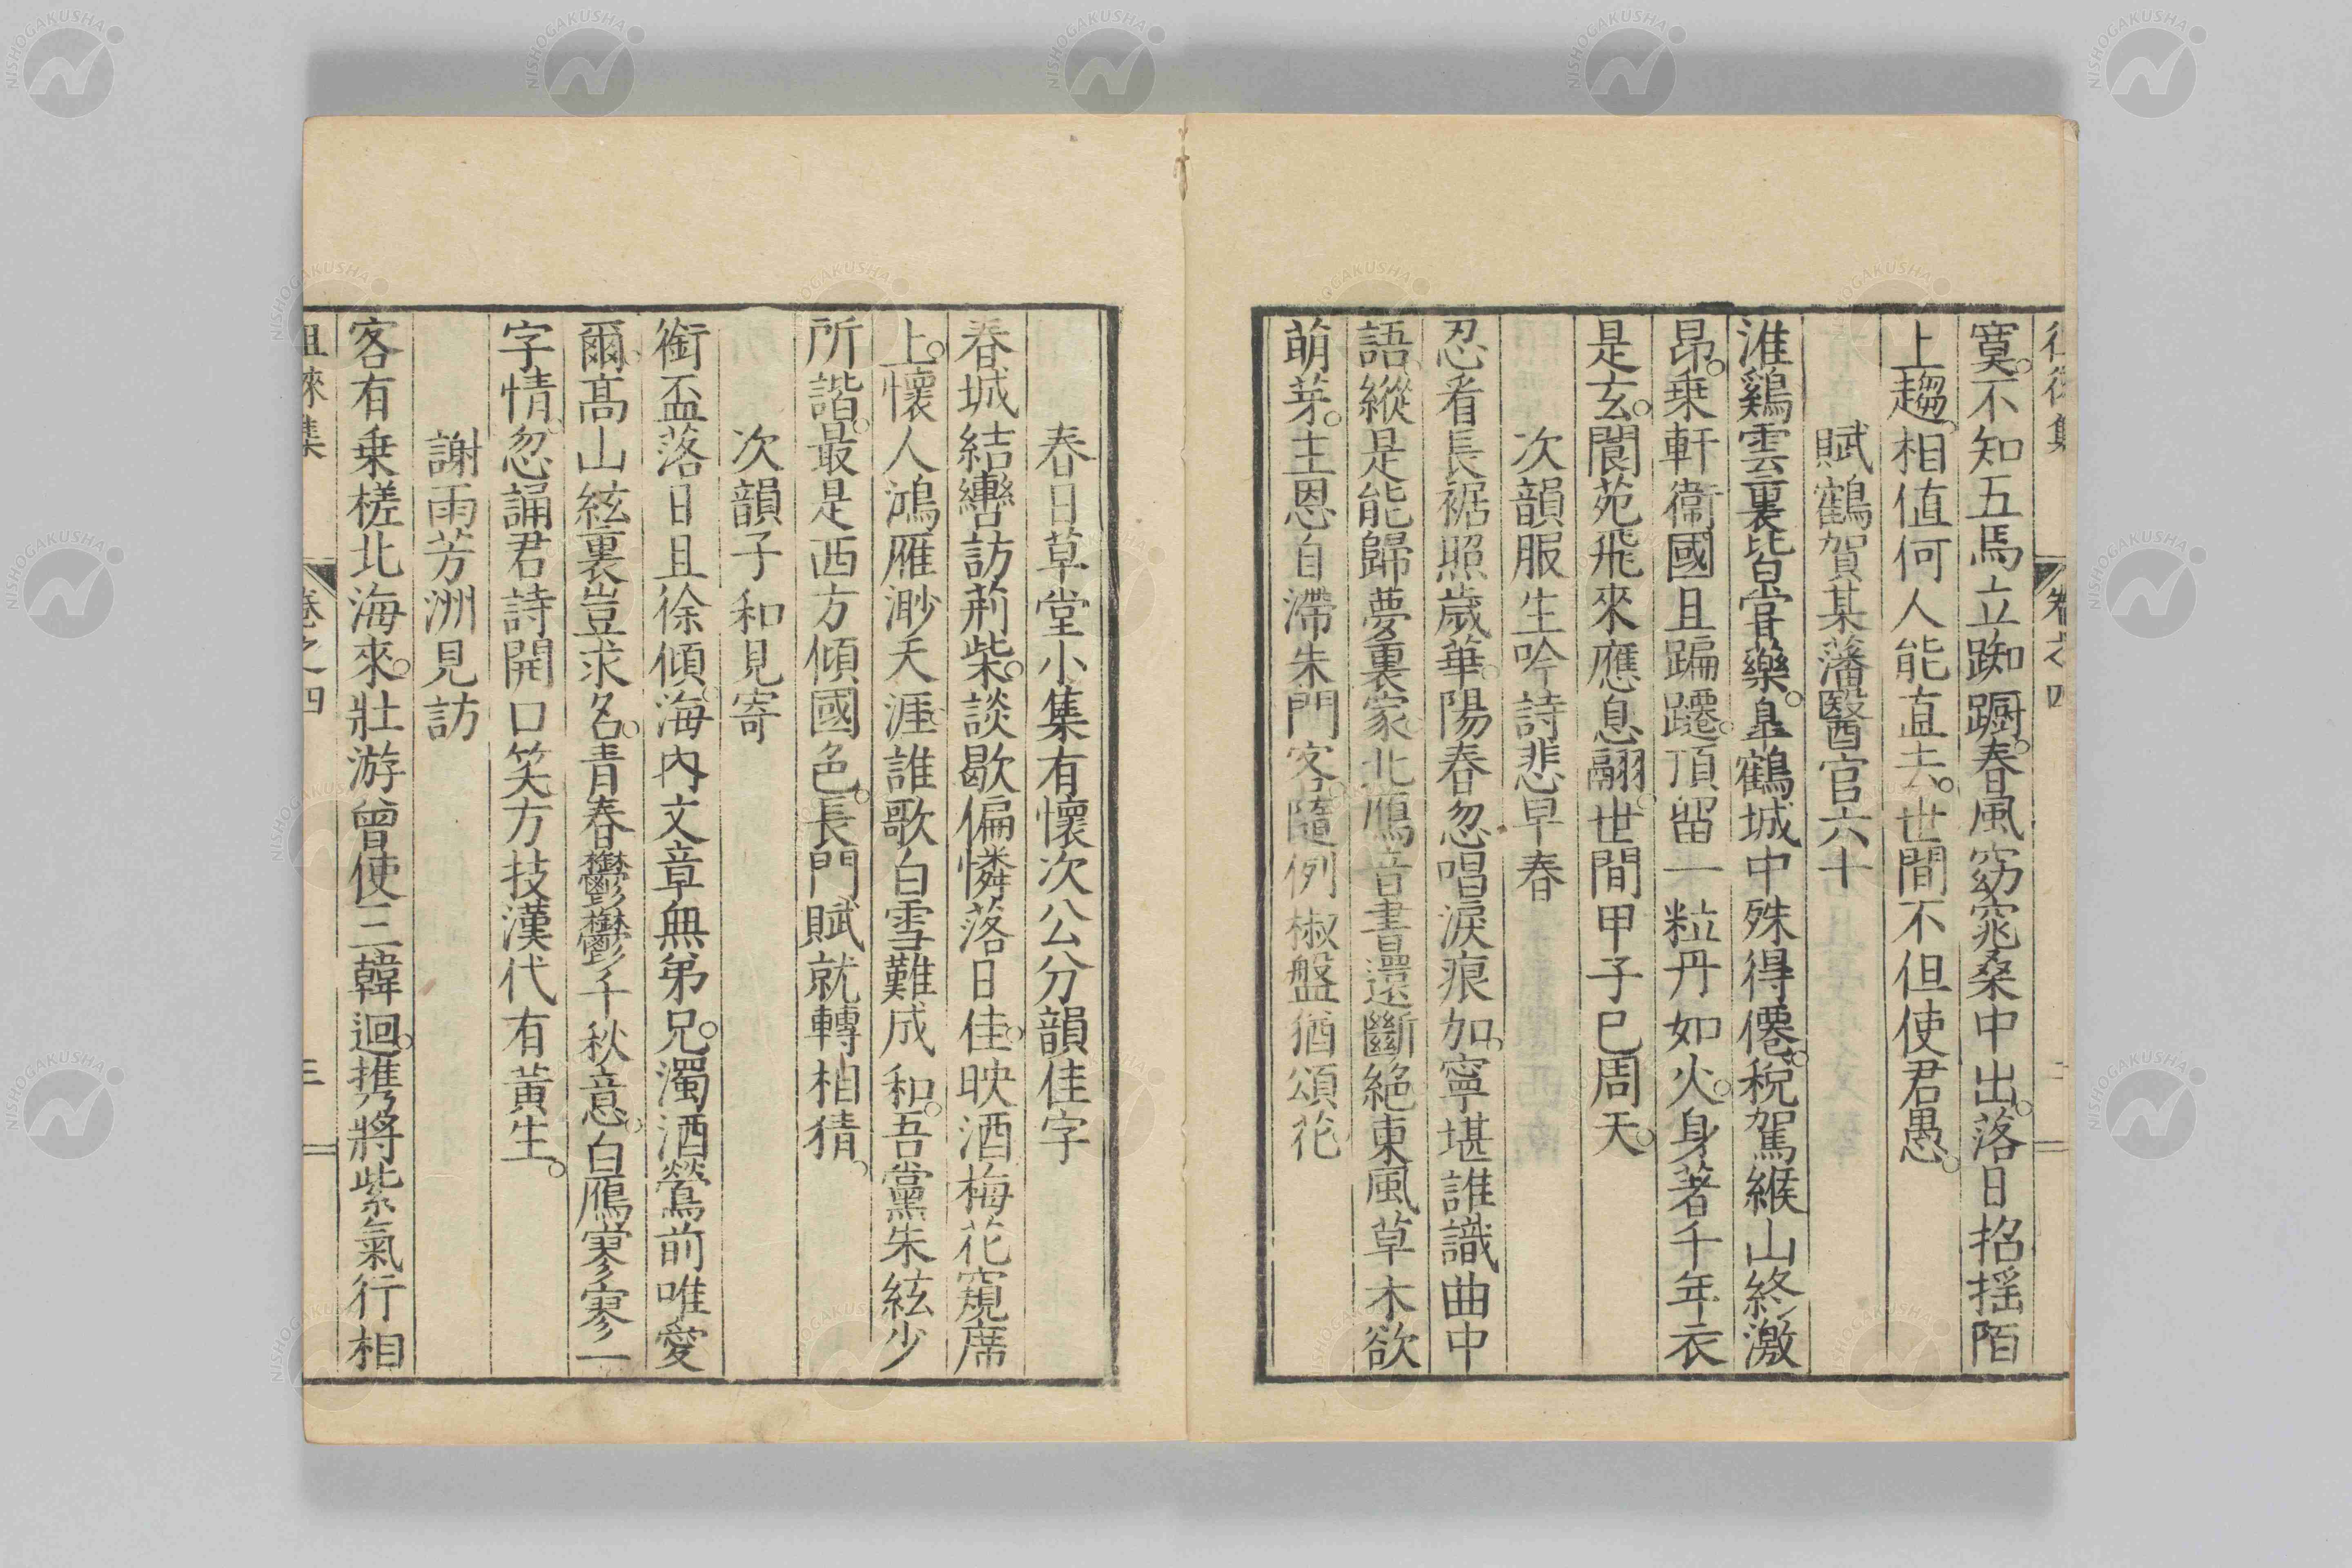 徂徠集 卷之四
寞。不知五馬立踟蹰。春風窈窕桑中出。落日招揺陌
上趨。相值何人能直去。世間不但使君愚。
賦鶴賀某藩醫官六十
淮鷄雲裏皆甞藥。皐鶴城中殊得僊。稅駕緱山終激
昂。乗軒衞國且蹁躚。頂留一粒丹如火。身著千年衣
是玄。閬苑飛來應息翮。世間甲子巳周天。
次韻服生吟詩悲早春
忍看長裾照歲華。陽春忽唱淚痕加。寧堪誰識曲中
語。縱是能歸夢裏家。北鴈音書還斷絶。東風草木欲
萌芽。主恩自滯朱門客。隨例椒盤猶頌花。
春日草堂小集有懷次公分韻佳字
春城結轡訪荊柴。談歇偏憐落日佳。映酒梅花窺席
上。懷人鴻雁渺天涯。誰歌白雪難成和。吾黨朱絃少
所諧。最是西方傾國色。長門賦就轉相猜。
次韻子和見寄
銜盃落日且徐傾。海內文章無弟兄。濁酒鶯前唯愛
爾。高山絃裏豈求名。青春鬱鬱千秋意。白鴈寥寥一
字情。忽誦君詩開口笑。方技漢代有黄生。
謝雨芳洲見訪
客有乗槎北海來。壯游曾使三韓迴。携將紫氣行相
徂徠集 卷之四 三